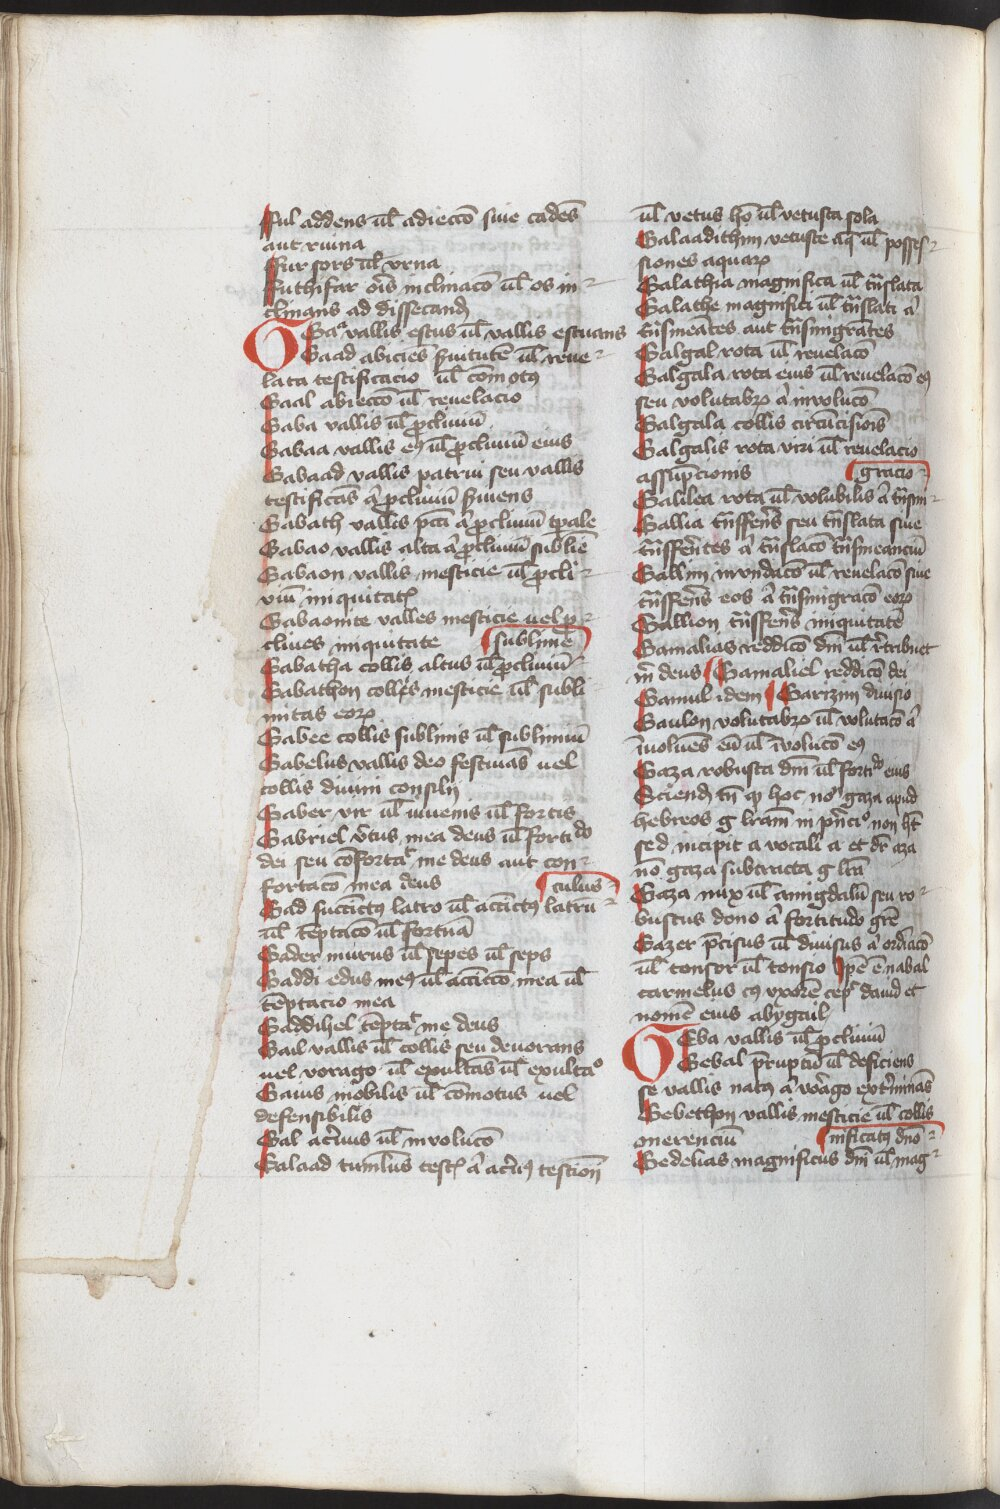 Ful addens ul̄ adieccō siue cadēs
aut ruina
Fur sors ul̄ vrna
Futhifar oīs inclinacō ul̄ os in-
clinans ad dissecand̄
Gaᵃ vallis estus ul̄ vallis estuans
Gaad abicies ẜuitutē ul̄ reue-
lata testificacio ul̄ cōmotꝰ
Gaal abieccō ul̄ reuelacio
Gaba vallis ul̄ ꝓcliuiū
Gabaa vallis eiꝰ ul̄ ꝓcliuiū eius
Gabaad vallis patrui seu vallis
testificās a̾ ꝓcliuiū ẜuiens
Gabath vallis pct̄i a̾ ꝓcliuiū tp̄ale
Gabao vallis alta a̾ ꝓcliuiū sublīe
Gabaon vallis mesticie ul̄ ꝓcli-
viū iniquitatꝭ
Gabaonite valles mesticie uel ꝓ-
cliues iniquitate
sublime
Gabatha collis altus ul̄ ꝓcliuiū
Gabathon colles mesticie ul̄ subli
mitas eoꝝ
Gabee collis sublimis ul̄ sublimiū
Gabelus vallis deo festiuās uel
collis diuini consilij
Gaber vir ul̄ iuuenis ul̄ fortis
Gabriel v̄tus mea deus ul̄ fortiᵈᵒ
dei seu cōfortaᵗ me deus aut con-
fortacō mea deus
culus
Gad succīctꝰ latro ul̄ accīctꝰ latrū-
ul̄ tēptacō ul̄ fortuā
Gader murus ul̄ sepes ul̄ seps
Gaddi edus meꝰ ul̄ accīccō mea ul̄
tēptacio mea
Gaddihel tēptaᵗ me deus
Gail vallis ul̄ collis seu deuorans
uel vorago ul̄ exultās ul̄ exultaᵒ
Gaius mobilis ul̄ cōmotus uel
defensibilis
Gal ac̾uus ul̄ inuolucō
Galaad tumulus testꝭ a̾ ac̾uꝰ testiōij
ul̄ vetus hō ul̄ vetusta sola
Galaadithim vetuste aq̄ ul̄ posses-
siones aquaꝝ
Galathia magnifica ul̄ tn̄slata
Galathe magnifici ul̄ tn̄slati a̾
tn̄smeātes aut tn̄smigrātes
Galgal rota ul̄ reuelacō
Galgala rota eius ul̄ reuelacō eiꝰ
seu volutabꝝ a̾ inuolucō
Galgala collis circūcisiōis
Galgalis rota viri ul̄ reuelacio
assūpcionis
gracio
Galilea rota ul̄ volubilis a̾ tn̄smi-
Gallia tn̄sferēs seu tn̄slata siue
tn̄sferētes a̾ tn̄slacō tn̄smeanciū
Gallim inundacō ul̄ reuelacō siue
tn̄sferēs eos a̾ tn̄smigracō eoꝝ
Gallion tn̄sferēs iniquitatē
Gamalias reddicō dn̄i ul̄ r̄tribuet
m̄ deus Gamaliel reddicō dei
Gamul idem Garizim diuisio
Gaulon volutabꝝ ul̄ volutacō a̾
īuoluēs eū ul̄ īuolucō eiꝰ
Gaza robusta dn̄i ul̄ fortiᵈᵒ eius
Sciend̄ tn̄ ꝙ hoc noᵉ gaza apud
hebreos g lr̄am in pn̄ciᵒ non hēt
sed incipit a vocali a et dr̄ aza
nō gaza subtracta g lr̄a
Gaza nux ul̄ amigdalū seu ro-
bustus dono a̾ fortitudo grē
Gazer p̄cisus ul̄ diuisus a̾ ordīacō
ul̄ tonsor ul̄ tonsio Ip̄e ē nabal
carmelus cꝰ vxorē cepᵗ dauid et
nomē eius abygail
Geba vallis ul̄ ꝓcliuiū
Gebal p̄ruptū ul̄ deficiens
se vallis natꝰ a̾ vorago ext̾minās
Gebethon vallis mesticie ul̄ collis
onerenciū
nificatꝰ dn̄o
Gedelias magnificus dn̄i ul̄ mag-